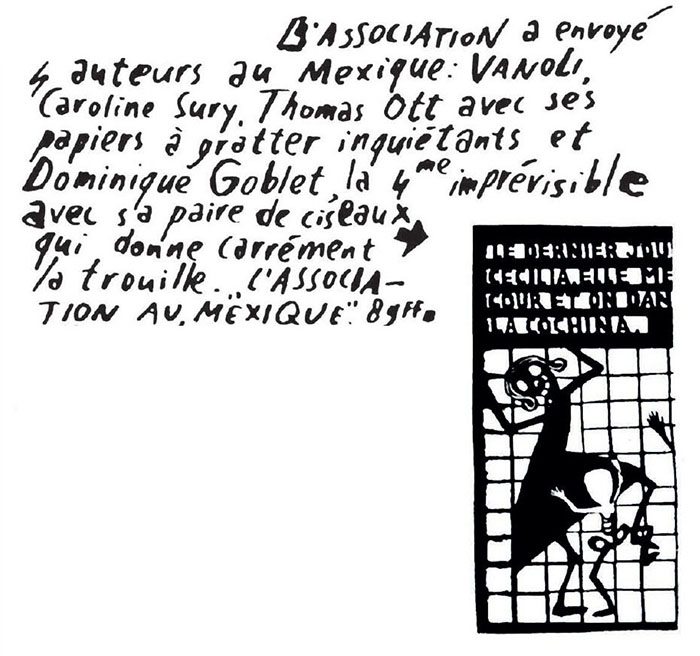 L'ASSOCIATION a envoyé
4 auteurs au Mexique: VANOLI,
Caroline Sury, Thomas Ott avec ses
papiers à gratter inquiétants et
Dominique Goblet, la 4me imprévisible
avec sa paire de ciseaux
qui donne carrément
la trouille. "L'ASSOCIA-
TION AU MEXIQUE". 89ff.
LE DERNIER JOU
CECILIA. ELLE ME
COUR ET ON DAN
LA COCHINA.